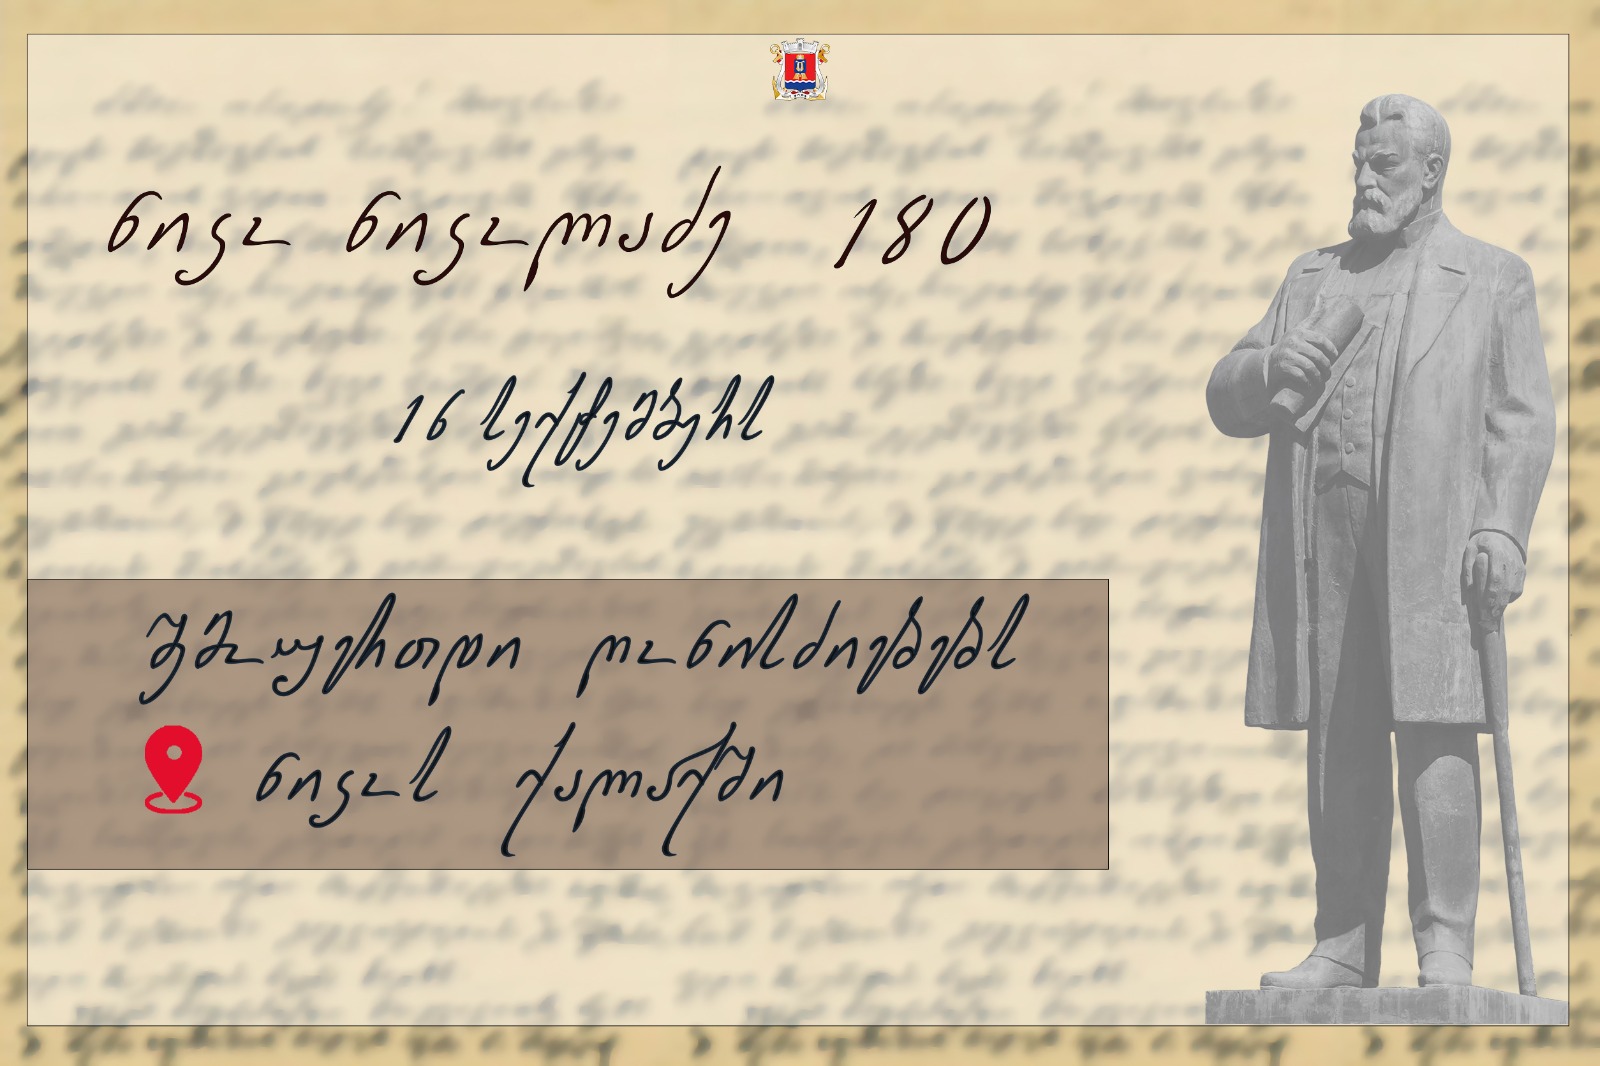 ნიკო ნიკოლაძე 180
16 სექტემბერს
შემოუერთდი ღონისძიებებს
ნიკოს ქალაქში